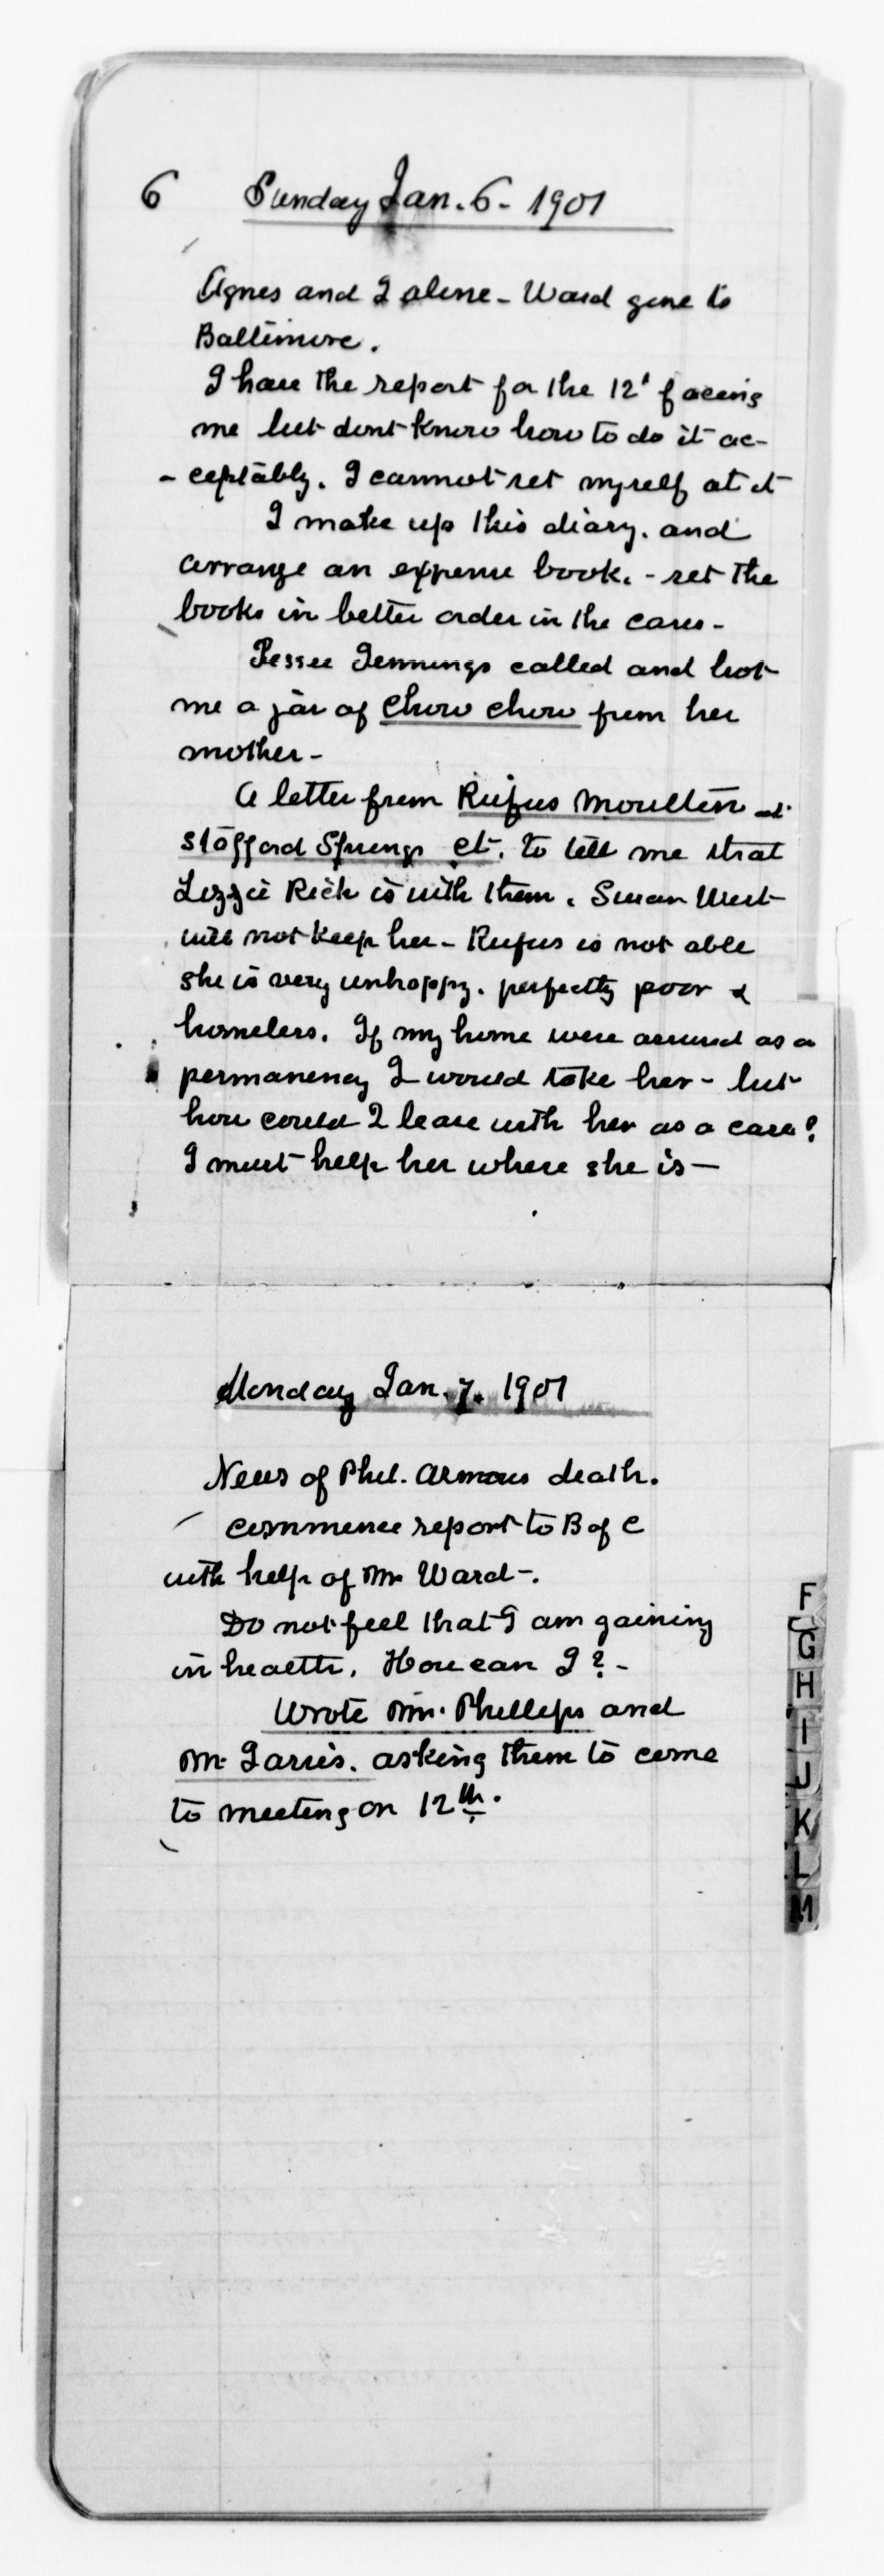 6 Sunday Jan. 6 - 1901
Agnes and I alone - Ward gone to
Baltimore.
I have the report for the 12' facing
me but dont know how to do it ac-
- ceptably. I cannot set myself at it
I make up this diary. and
arrange an expense book. - set the
books in better order in the cases -
Jessee Jennings called and bot
me a jar of Chow Chow from her
mother -
A letter from Rufus Moulton at
Stafford Springs Ct. to tell me that
Lizzie Rich is with them. Susan West
will not keep her - Rufus is not able
she is very unhappy. perfectly poor &
homeless. If my home were assured as a
permanency I would take her - but
how could I leave with her as a care?
I must help her where she is -
Monday Jan. 7. 1901
News of Phil. Armours death.
commence report to B of C
with help of Mr Ward -.
Do not feel that I am gaining
in health. How can I? -
Wrote Mr. Phillips and
Mr. Tarris. asking them to come
to meeting on 12th.
F
G
H
I
J
K
L
M